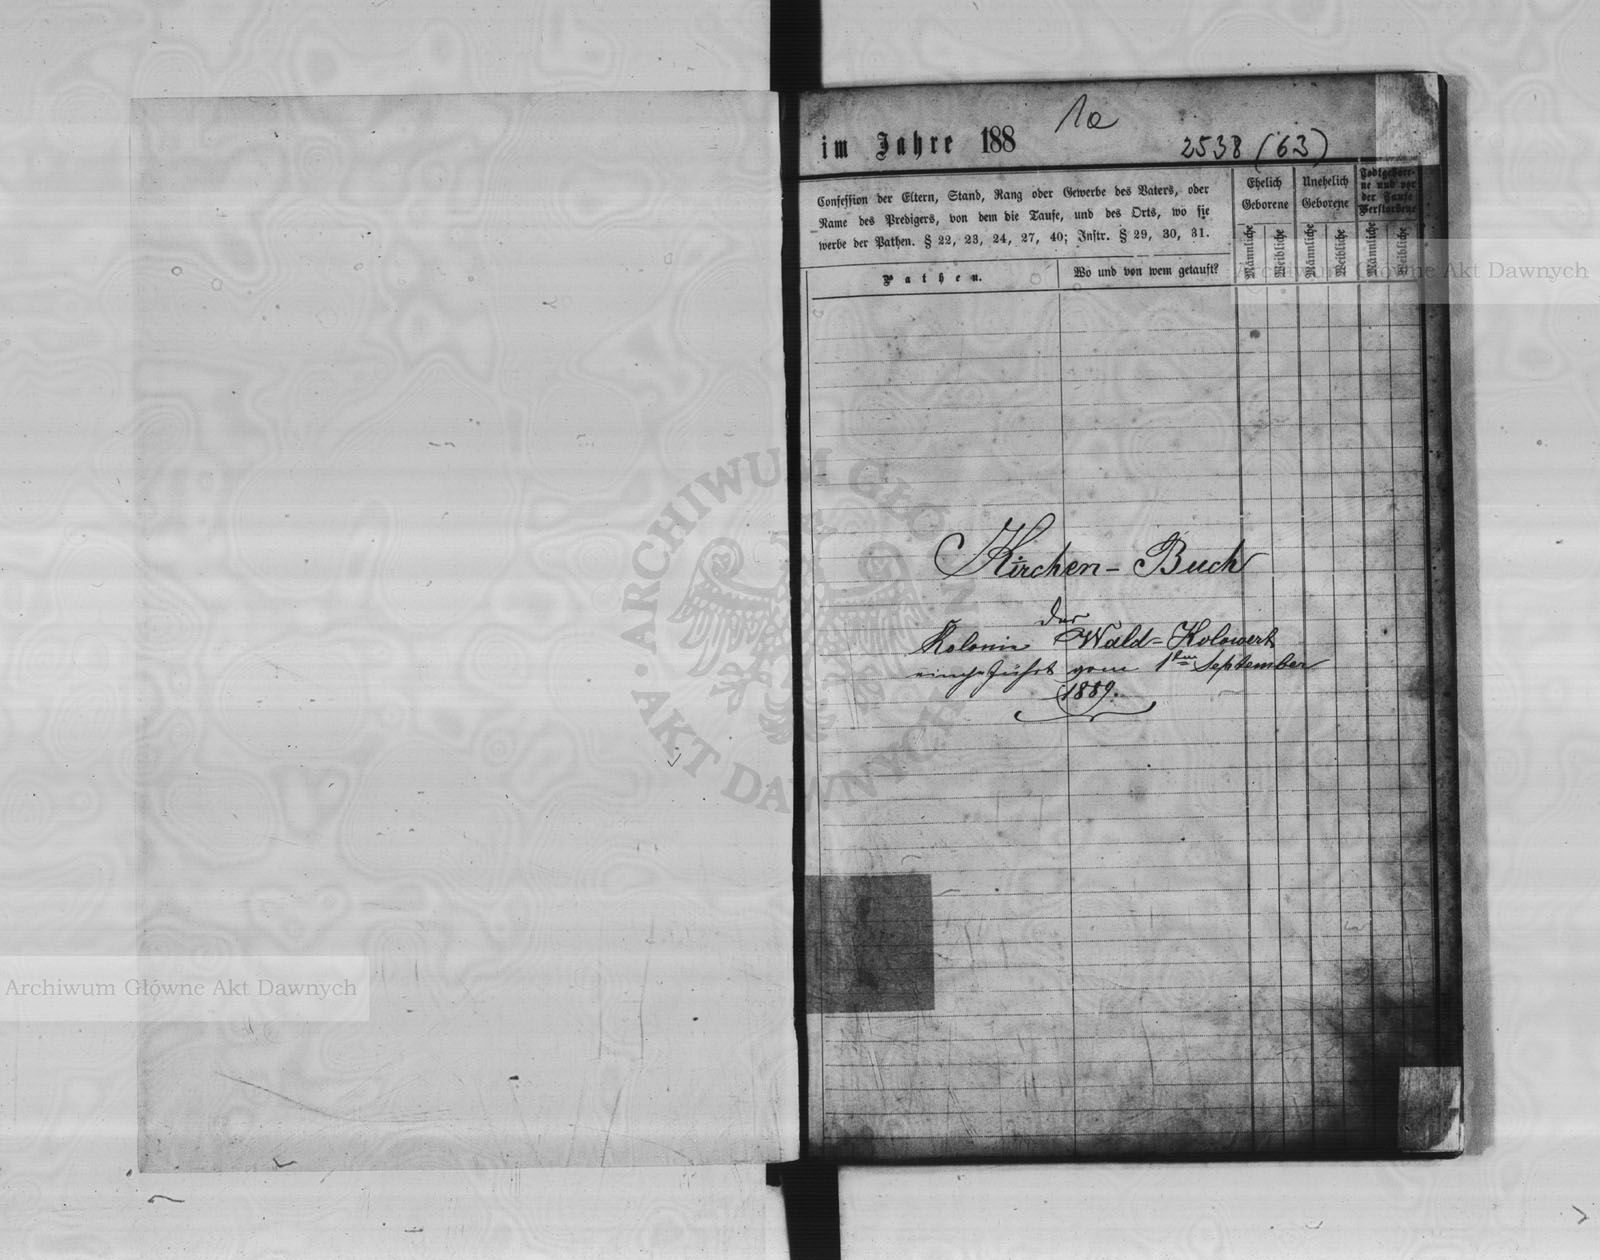 1a
im Jahre 188
2538 (63)
Confession der Eltern, Stand, Rang oder Gewerbe des Vaters, oder
Name des Predigers, von dem die Taufe, und des Orts, wo sie
werbe der Pathen. § 22, 23, 24, 27, 40; Instr. § 29, 30, 31.
Pathen.
Wo und von wem getauft?
Ehelich
Geborene
Unehelich
Geborene
Todtgebore-
ne und vor
der Taufe
Verstorbene
Männliche
Weibliche
Männliche
Weibliche
Männliche
Weibliche
Kirchen-Buch
der
Kolonie Wald-Kolowert
eingeführt vom 1ten September
1889.
ARCHIWUM GŁÓWNE AKT DAWNYCH
Archiwum Główne Akt Dawnych
Archiwum Główne Akt Dawnych